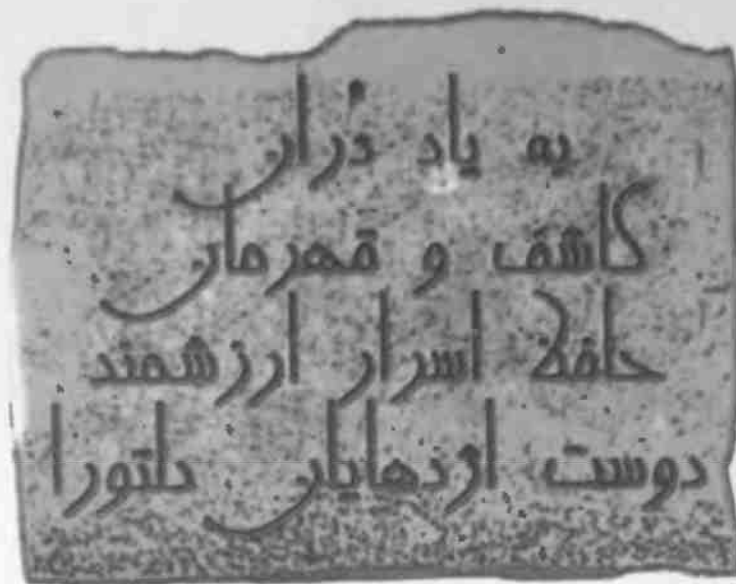 به یاد دُران
کاشف و قهرمان
حافظ اسرار ارزشمند
دوست اژدهایان دلتورا